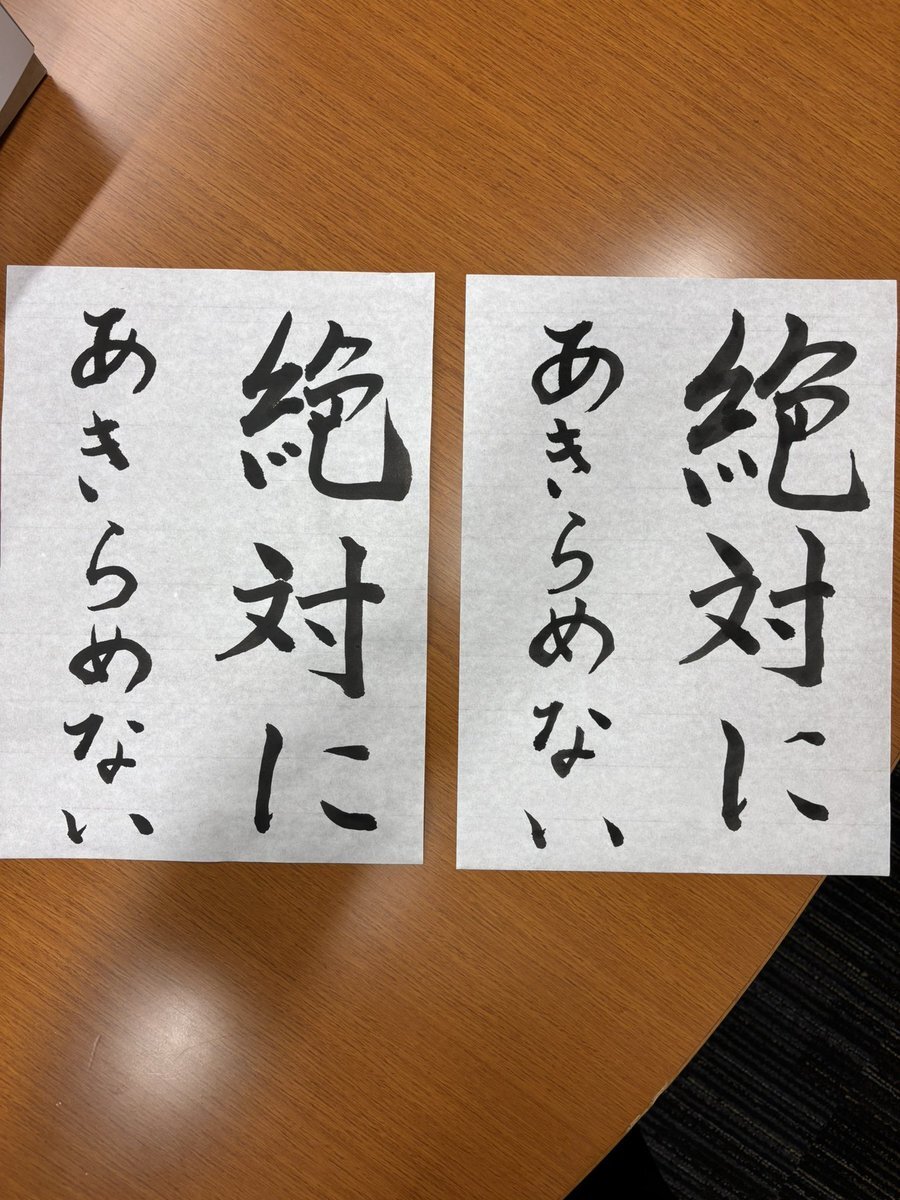 絶対に
あきらめない
絶対に
あきらめない